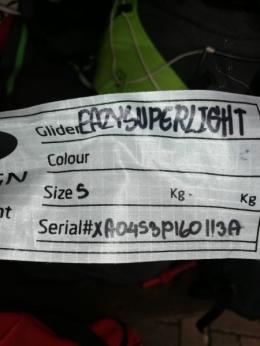 Glider EAZYSUPERLIGHT
Colour
Size S Kg - Kg
Serial# XA04S3P160113A